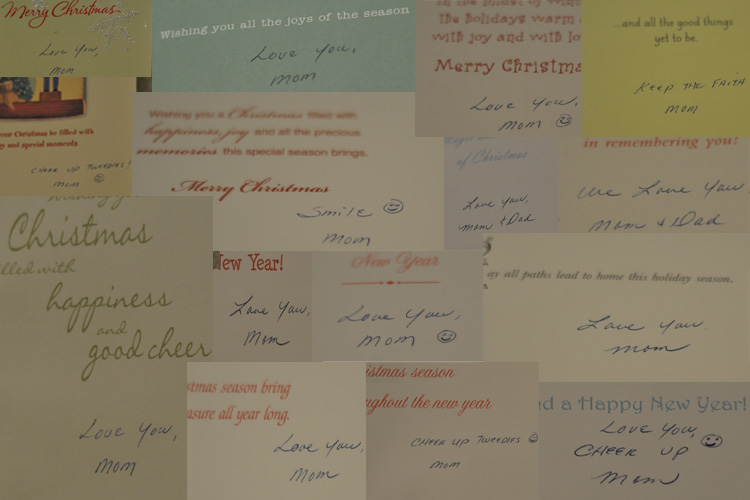 Merry Christmas
Love You,
Mom
Wishing you all the joys of the season
Love You,
Mom
the holidays warm
with joy and with lo
Merry Christma
Love You,
Mom
...and all the good things
yet to be.
KEEP THE FAITH
MOM
our Christmas be filled with
and special moments
CHEER UP TWEEDIES!
MOM
Wishing you a Christmas filled with
happiness, joy and all the precious
memories this special season brings.
Merry Christmas
SMILE
Mom
of Christmas
Love You,
Mom + Dad
in remembering you!
We Love You
Mom & Dad
Christmas
lled with
happiness
and
good cheer
Love You,
Mom
New Year!
Love You,
Mom
New Year
Love You,
Mom
ay all paths lead to home this holiday season.
Love You,
Mom
stmas season bring
asure all year long.
Love You,
Mom
istmas season
ughout the new year
CHEER UP TWEEDIES
MOM
d a Happy New Year!
Love You,
CHEER UP
Mom